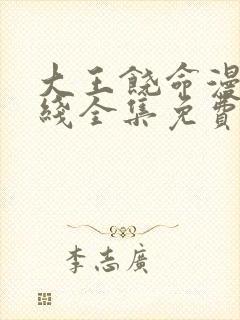 大王饶命漫
綫全集免費
李志廣